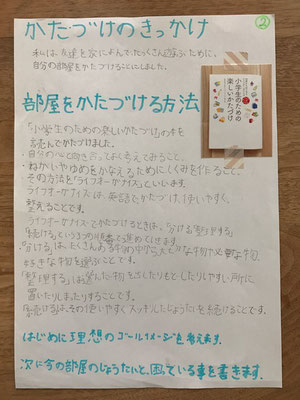 ②
かたづけのきっかけ
私は友達を家によんでたくさん遊ぶために、
自分の部屋をかたづけることにしました。
部屋をかたづける方法
小学生のための
楽しいかたづけ
「小学生のための楽しいかたづけ」の本を
お読んでかたづけました。
・自分の心と向き合ってよく考えてみること。
・ねがいやゆめをかなえるためにしくみを作ること。
その方法を「ライフオーガナイズ」といいます。
ライフオーガナイズは、英語でかたづけ、使いやすく、
整えることです。
ライフオーガナイズでかたづけるときは、「分ける」「整理する」
「続ける」という3つの順番で進めていきます。
「分ける」は、たくさんある物の中から大じな物や必要な物、
好きな物を選ぶことです。
「整理する」は選んだ物を出したりもどしたりしやすい所に
置いたりしまったりすることです。
「続ける」は、その使いやすくスッキリしたじょうたいを続けることです。
はじめに理想のゴールイメージを考えます。
次に今の部屋のじょうたいと、困っている事を書きます。